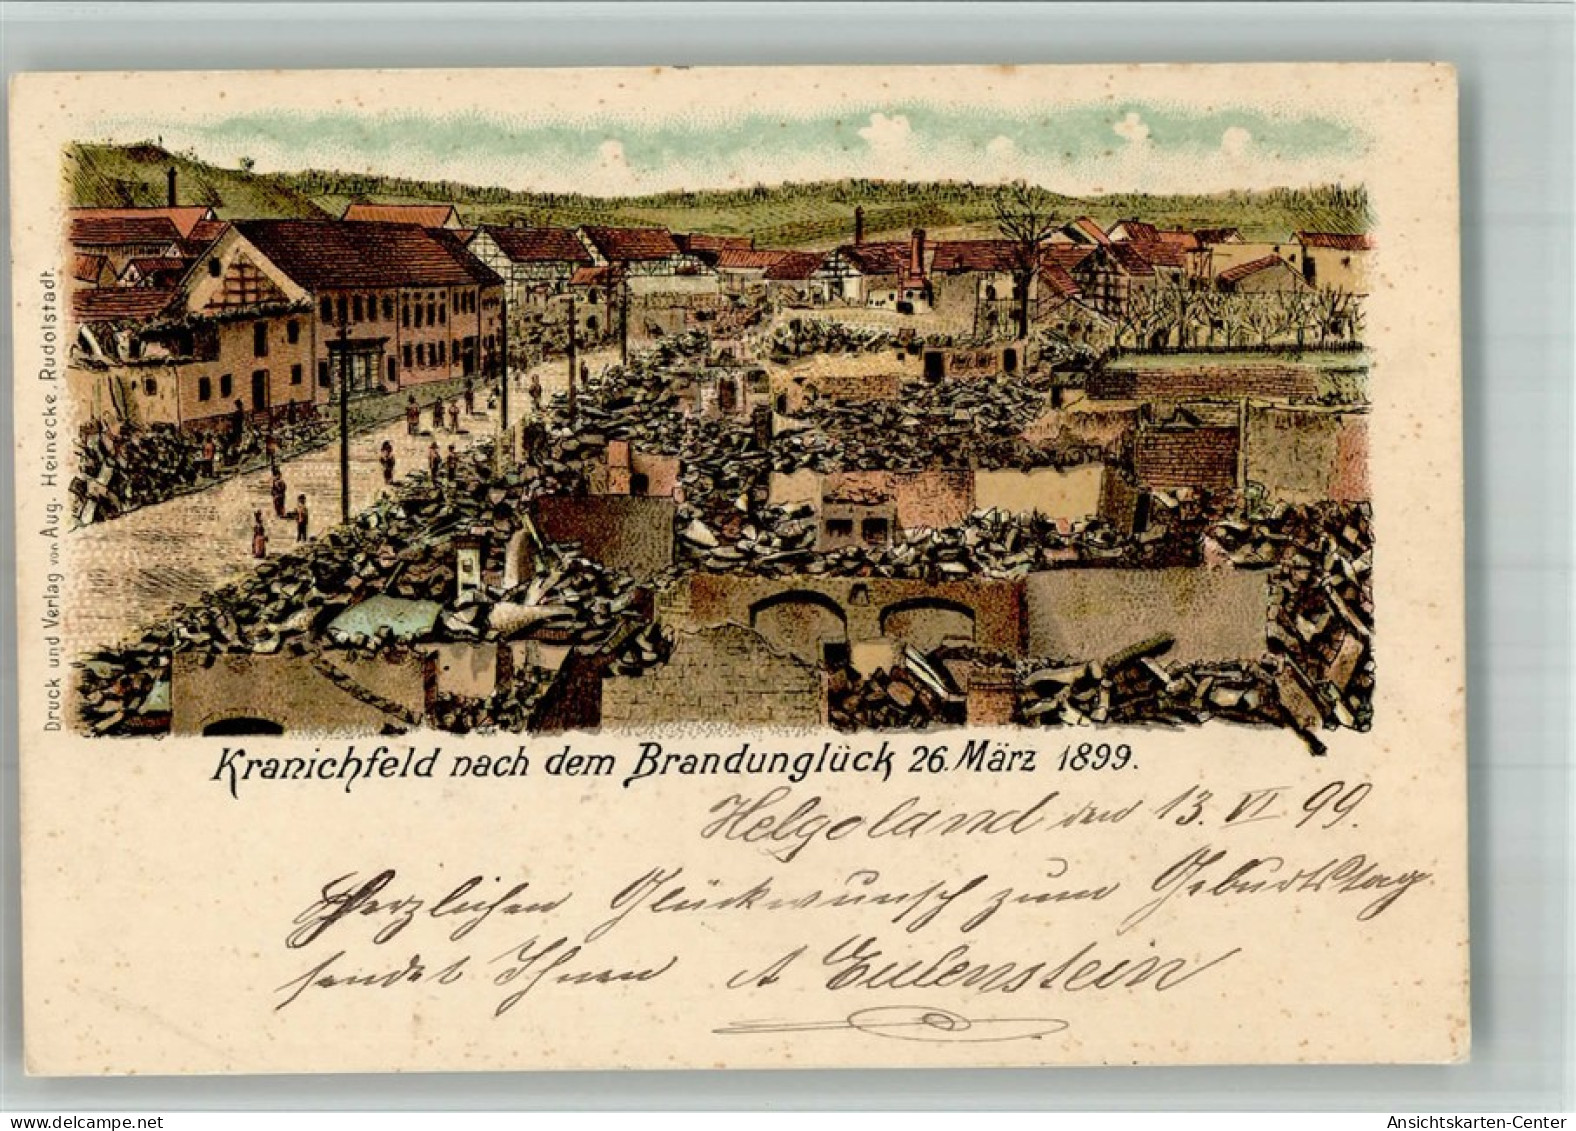 Druck und Verlag von Aug. Heinecke, Rudolstadt.
Kranichfeld nach dem Brandunglück 26. März 1899.
Helgoland den 13. VI 99.
Herzlichen Glückwunsch zum Geburtstag
sendet Ihnen A Eulenstein
www.delcampe.net
Ansichtskarten-Center